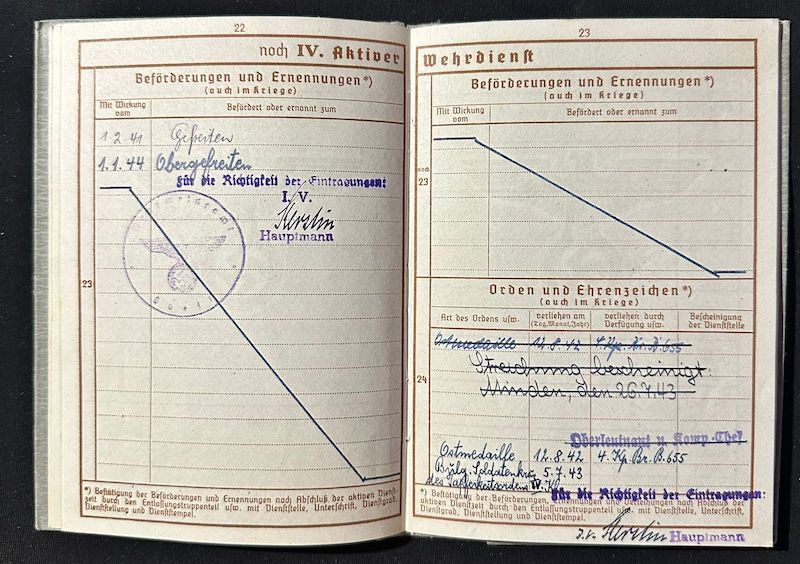 22
noch IV. Aktiver
Beförderungen und Ernennungen*)
(auch im Kriege)
Mit Wirkung vom
Befördert oder ernannt zum
1.2.41 Gefreiten
1.1.44 Obergefreiten
Für die Richtigkeit der Eintragungen:
I.V.
Hauptmann
23
*) Bestätigung der Beförderungen und Ernennungen nach Abschluß der aktiven Dienst-
zeit durch den Entlassungstruppenteil usw. mit Dienststelle, Unterschrift, Dienstgrad,
Dienststellung und Dienststempel.
23
Wehrdienst
Beförderungen und Ernennungen*)
(auch im Kriege)
Mit Wirkung vom
Befördert oder ernannt zum
noch
23
Orden und Ehrenzeichen*)
(auch im Kriege)
Art des Ordens usw.
verliehen am
(Tag, Monat, Jahr)
verliehen durch
Verfügung usw.
Bescheinigung
der Dienststelle
Ostmedaille 12.8.42 4. Kp. Br. B. 655
Streichung bescheinigt.
Minden, den 26.7.43
24
Oberleutnant u. Komp.-Chef
Ostmedaille 12.8.42 4. Kp. Br. B. 655
5.7.43
des Tapferkeitsordens IV. Kl.
Für die Richtigkeit der Eintragungen:
*) Bestätigung der Beförderungen, Ernennungen und nach Abschluß der
aktiven Dienstzeit durch den Entlassungstruppenteil usw. mit Dienststelle, Unterschrift,
Dienstgrad, Dienststellung und Dienststempel.
I.V. Hauptmann